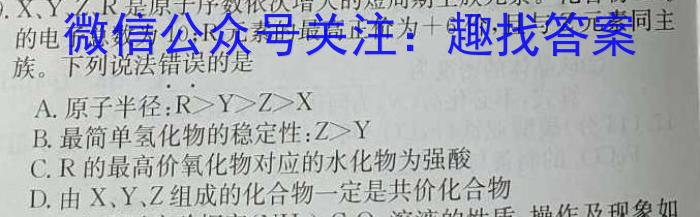 X、Y、Z、R是原子序数依次增大的短周期主族元素。
的电 微信公众号关注：趣找答案 同主
族。下列说法错误的是
A. 原子半径：R＞Y＞Z＞X
B. 最简单氢化物的稳定性：Z＞Y
C. R 的最高价氧化物对应的水化物为强酸
D. 由 X、Y、Z 组成的化合物一定是共价化合物
溶液的性质，操作及现象如